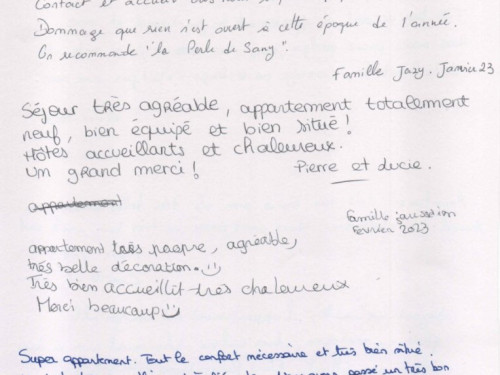 Contact et accueil
Dommage que rien n'est ouvert à cette époque de l'année.
On recommande "la Perle de Sang".
Famille Jazy. Janvier 23
Séjour très agréable, appartement totalement
neuf, bien équipé et bien situé !
Hôtes accueillants et chaleureux.
Un grand merci !
Pierre et Lucie.
appartement
famille
fevrier 2023
appartement très propre, agréable,
très belle décoration.
Très bien accueillit très chaleureux
Merci beaucoup
Super appartement. Tout le confort nécessaire et très bien situé.
passé un très bon